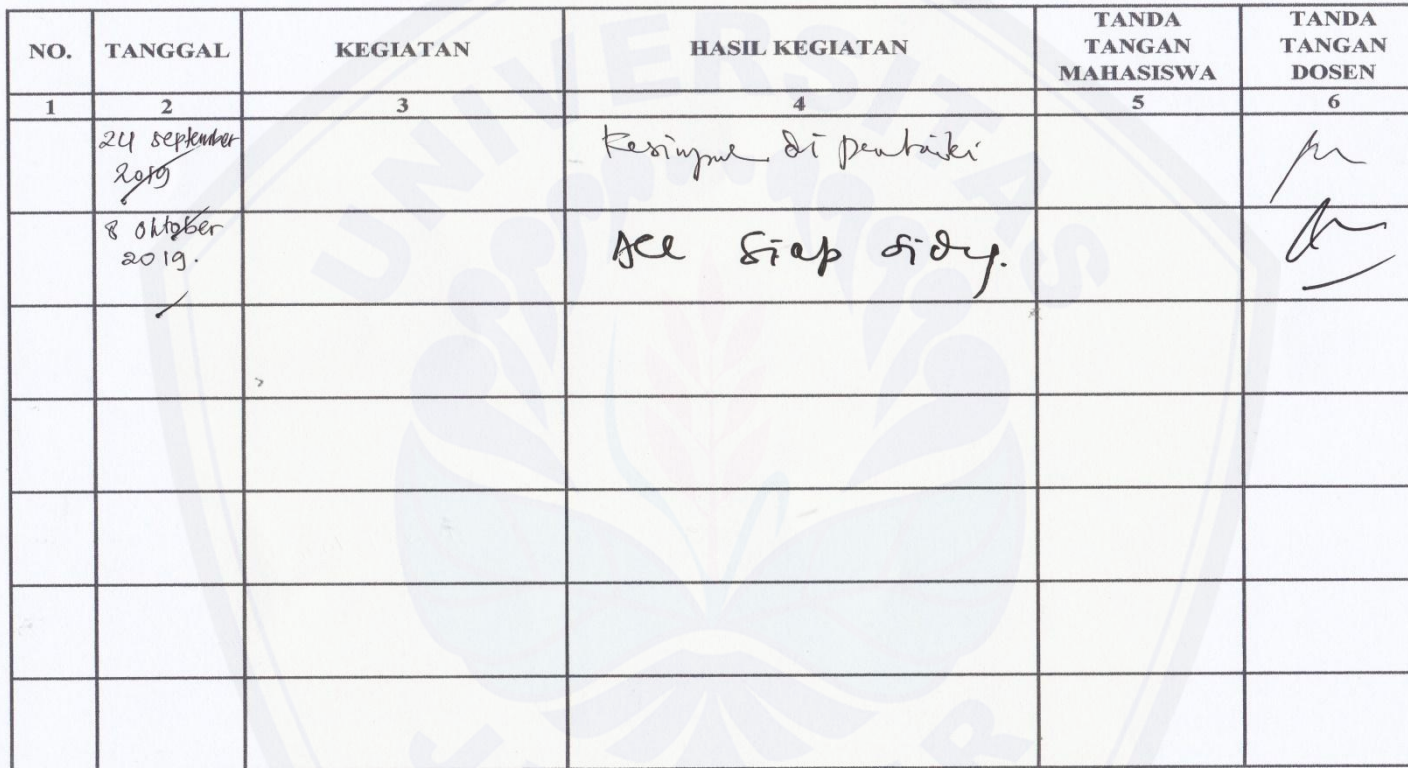 NO. TANGGAL KEGIATAN HASIL KEGIATAN TANDA TANGAN MAHASISWA TANDA TANGAN DOSEN
1 2 3 4 5 6
24 September
2019
di perbaiki
8 Oktober
2019.
Acc Siap sidang.
UNIVERSITAS